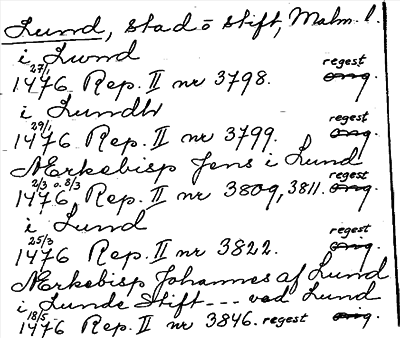 Lund, stad o stift, Malm. l.
i Lund
27/1 1476 Rep. II nr 3798. regest orig.
i Lundh
29/1 1476 Rep. II nr 3799. regest orig.
Ærkebisp Jens i Lund
2/3 o. 8/3 1476, Rep. II nr 3809, 3811. regest orig.
i Lund
25/3 1476 Rep. II nr 3822. regest orig.
Ærkebisp Johannes af Lund
i Lunde Stift --- ved Lund
18/5 1476 Rep. II nr 3846. regest orig.